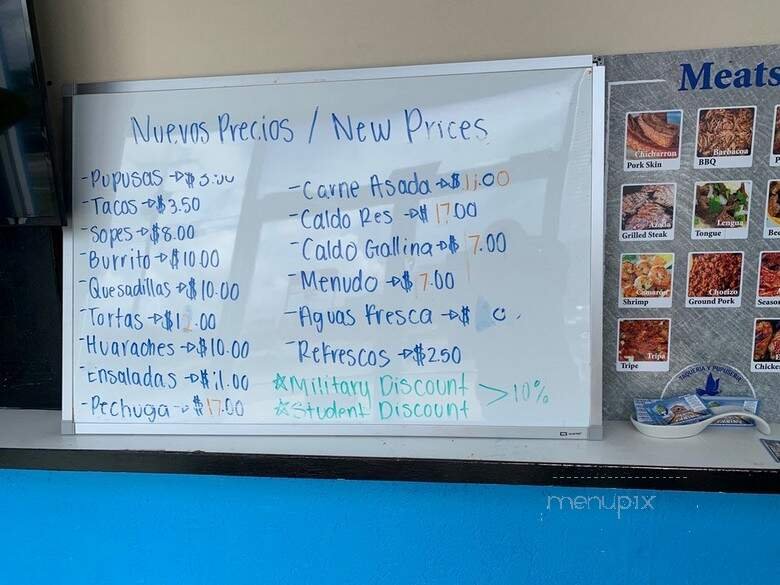 Nuevos Precios / New Prices
- Pupusas →
- Tacos → $3.50
- Sopes → $8.00
- Burrito → $10.00
- Quesadillas → $10.00
- Tortas →
- Huaraches → $10.00
- Ensaladas →
- Pechuga → $17.00
- Carne Asada →
- Caldo Res → $17.00
- Caldo Gallina → $ 7.00
- Menudo → $ 7.00
- Aguas Fresca → $
- Refrescos → $2.50
☆ Military Discount > 10%
☆ Student Discount
Meats
Chicharron
Pork Skin
Barbacoa
BBQ
Asada
Grilled Steak
Lengua
Tongue
Camarón
Shrimp
Chorizo
Ground Pork
Tripa
Tripe
TAQUERIA Y PUPUSERIA
menupix